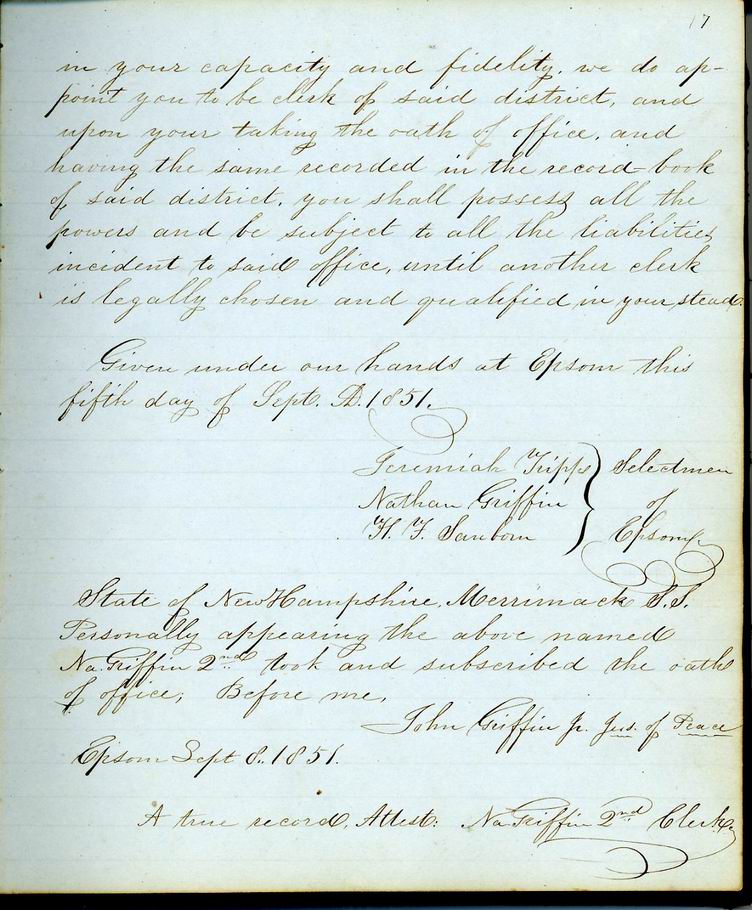 17
in your capacity and fidelity, we do ap-
point you to be clerk of said district, and
upon your taking the oath of office, and
having the same recorded in the record-book
of said district, you shall possess all the
powers and be subject to all the liabilities
incident to said office, until another clerk
is legally chosen and qualified in your stead.
Given under our hands at Epsom this
fifth day of Sept. A.D. 1851.
Jeremiah Tripp } Selectmen
Nathan Griffin of
H. F. Sanborn Epsom
State of New Hampshire, Merrimack S.S.
Personally appearing the above named
Na. Griffin 2nd took and subscribed the oath
of office; Before me,
John Griffin Jr. Jus. of Peace
Epsom Sept 8.. 1851.
A true record, Attest: Na. Griffin 2nd Clerk.